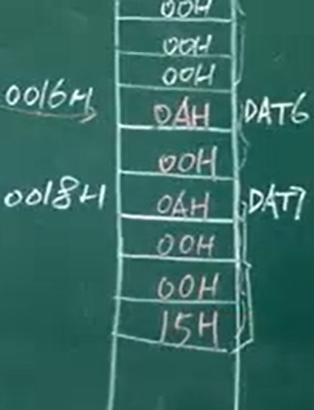 00H
00H
00H
0016H 0AH DAT6
00H
0018H 0AH DAT7
00H
00H
15H